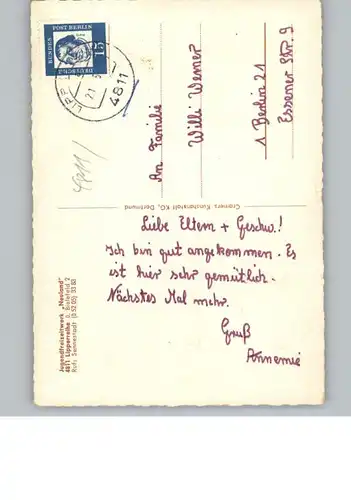 DEUTSCHE
BUNDES
POST BERLIN
15
LIPP
21
4811
An Familie
Willi Werner
1 Berlin 21
Essener Str. 9
4811/
Cramers Kunstanstalt KG, Dortmund
Liebe Eltern + Geschw.!
Ich bin gut angekommen. Es
ist hier sehr gemütlich.
Nächstes Mal mehr.
Gruß
Annemie
Jugendfreizeitwerk „Neuland"
4811 Lipperreihe ü. Bielefeld 2
Ruf: Sennestadt (0 52 05) 33 83